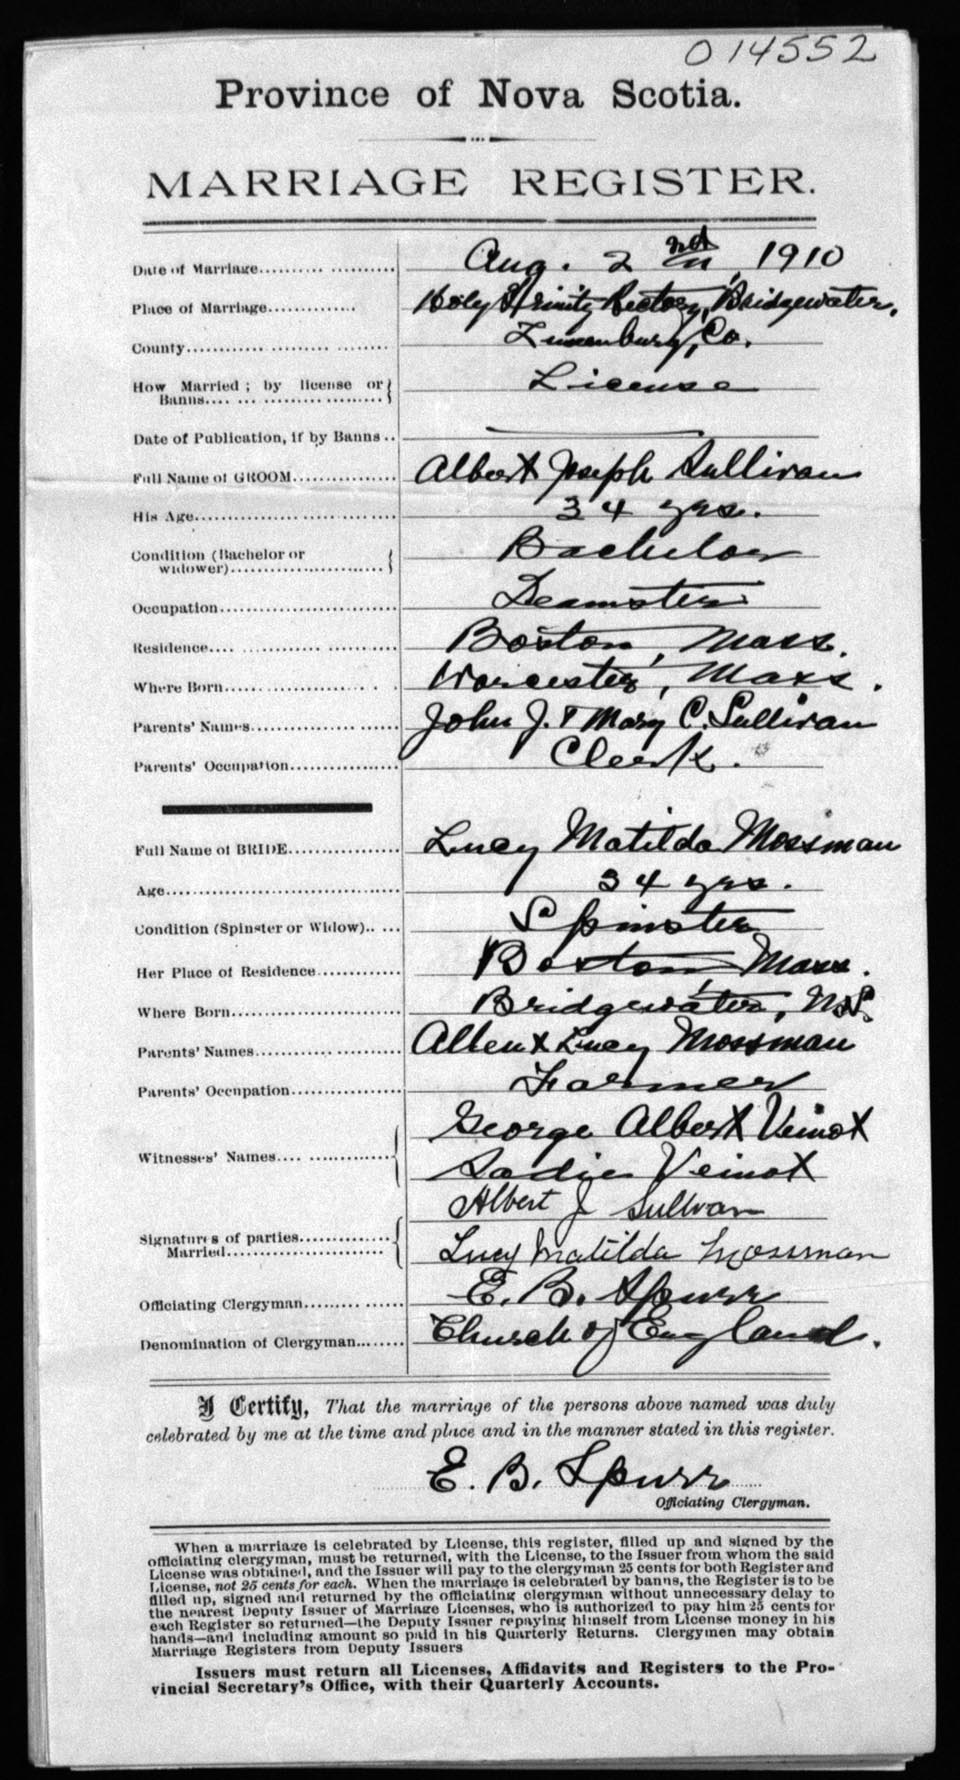 014552
Province of Nova Scotia.
MARRIAGE REGISTER.
Date of Marriage.......... Aug. 2nd, 1910
Place of Marriage.......... Holy Trinity Rectory, Bridgewater,
County.......... Lunenburg, Co.
How Married; by license or Banns.......... License
Date of Publication, if by Banns..
Full Name of GROOM.......... Albert Joseph Sullivan
His Age.......... 34 yrs.
Condition (Bachelor or widower).......... Bachelor
Occupation.......... Teamster
Residence.......... Boston, Mass.
Where Born.......... Worcester, Mass.
Parents' Names.......... John J. & Mary C. Sullivan
Parents' Occupation.......... Clerk.
Full Name of BRIDE.......... Lucy Matilda Mossman
Age.......... 34 yrs.
Condition (Spinster or Widow).. ... Spinster
Her Place of Residence.......... Boston, Mass.
Where Born.......... Bridgewater, N.S.
Parents' Names.......... Lucy Mossman
Parents' Occupation.......... Farmer
Witnesses' Names.......... George Albert Veinot
Sadie Veinot
Signatures of parties Married.......... Albert J Sullivan
Lucy Matilda Mossman
Officiating Clergyman.......... E. B. Spurr
Denomination of Clergyman....... Church of England.
I Certify, That the marriage of the persons above named was duly
celebrated by me at the time and place and in the manner stated in this register.
E. B. Spurr
Officiating Clergyman.
When a marriage is celebrated by License, this register, filled up and signed by the
officiating clergyman, must be returned, with the License, to the Issuer from whom the said
License was obtained, and the Issuer will pay to the clergyman 25 cents for both Register and
License, not 25 cents for each. When the marriage is celebrated by banns, the Register is to be
filled up, signed and returned by the officiating clergyman without unnecessary delay to
the nearest Deputy Issuer of Marriage Licenses, who is authorized to pay him 25 cents for
each Register so returned—the Deputy Issuer repaying himself from License money in his
hands—and including amount so paid in his Quarterly Returns. Clergymen may obtain
Marriage Registers from Deputy Issuers
Issuers must return all Licenses, Affidavits and Registers to the Pro-
vincial Secretary's Office, with their Quarterly Accounts.